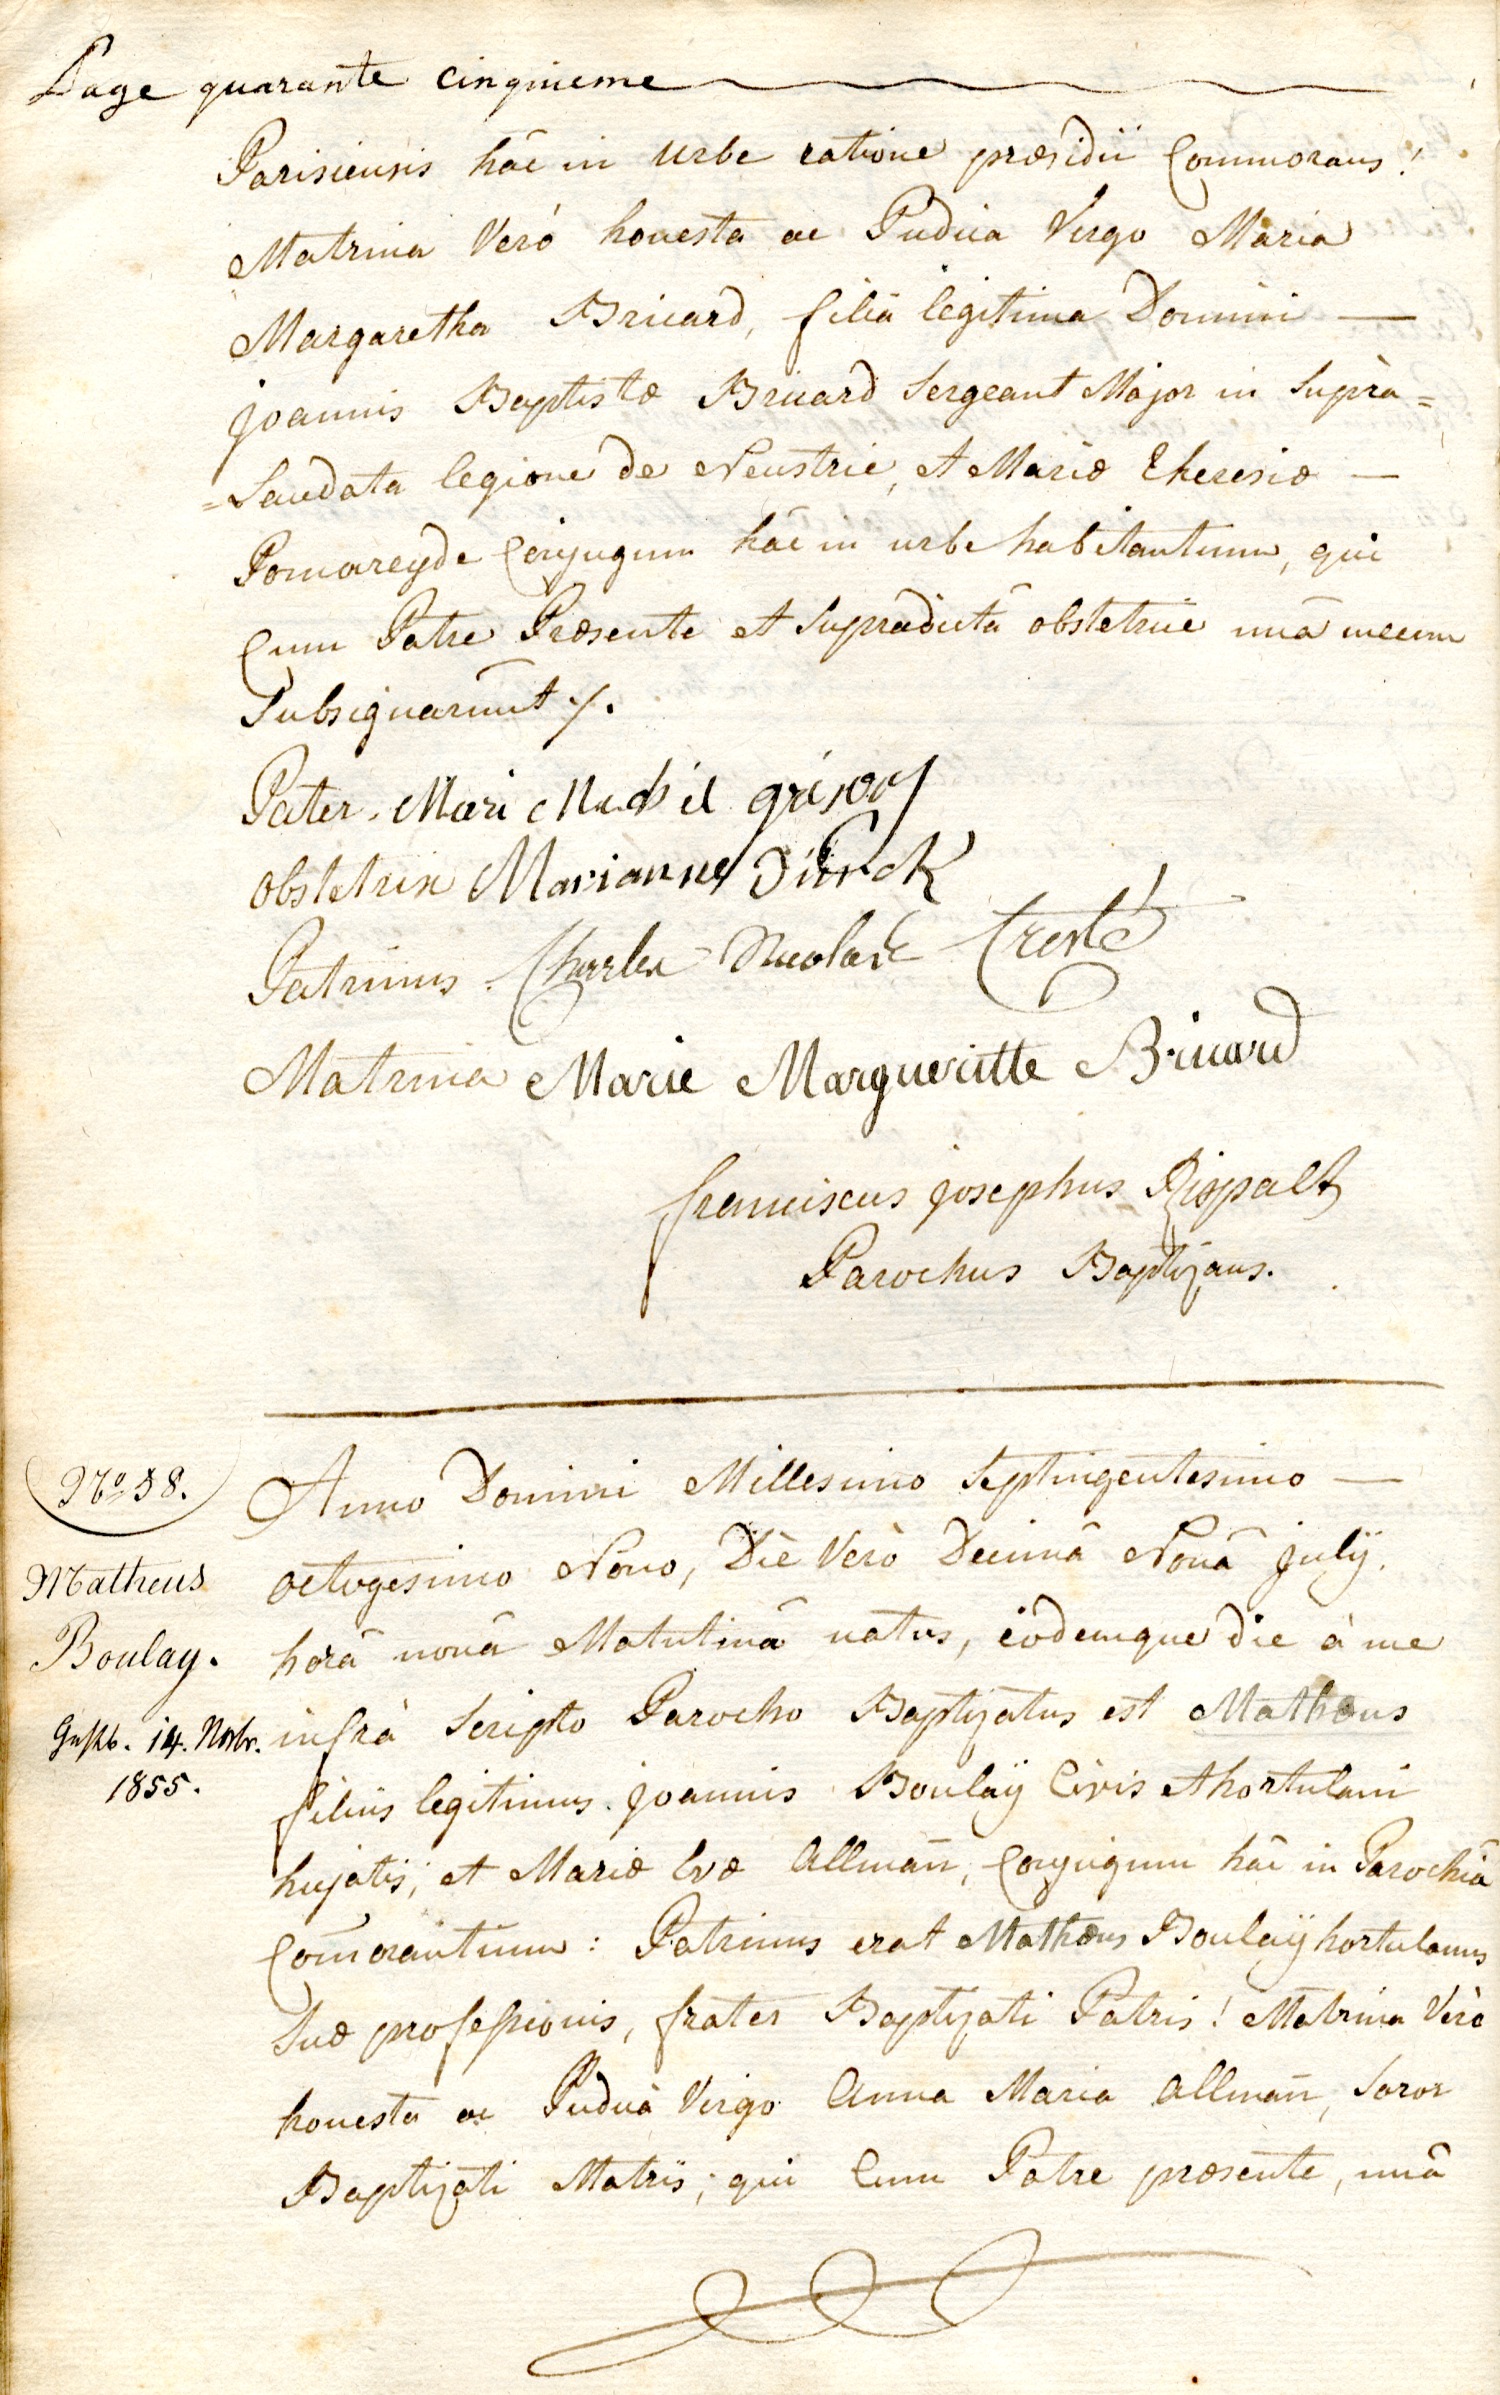 Page quarante cinquieme
Parisiensis hâc in urbe ratione præsidii Commorans!
Matrina Verò honesta ac Pudica Virgo Maria
Margaretha Bricard, filia legitima Domini —
joannis Baptistæ Bricard Sergeant Major in Suprà=
=Laudata legione de Neustrie, et Mariæ Theresiæ —
Pomareyde Conjugum hâc in urbe habitantium, qui
Cum Patre Præsente et Supradictâ obstetrice unâ mecum
Subsignarunt ./.
Pater. Mari grisoy
obstetrix Marianne Dürck
Patrinus. Charles Nicolas Cresté
Matrina Marie Margueritte Bricard
franciscus josephus Rispalt
Parochus Baptizans.
No 38.
Matheus
Boulay.
14. Novbr.
1855.
Anno Domini Millesimo Septingentesimo —
octogesimo Nono, Die Verò Decimâ Nonâ julÿ.
horâ nonâ Matutinâ natus, eôdemque die à me
infrà Scripto Parocho Baptizatus est Mathæus
filius legitimus joannis Boulaÿ Civis et hortulani
hujatis; et Mariæ Evæ Allmañ, Conjugum hâc in Parochiâ
Com̃orantium: Patrinus erat Mathæus Boulaÿ hortulanus
Suæ professionis, frater Baptizati Patris! Matrina Verò
honesta ac Pudica Virgo Anna Maria Allmañ, Soror
Baptizati Matris; qui Cum Patre præsente, unâ